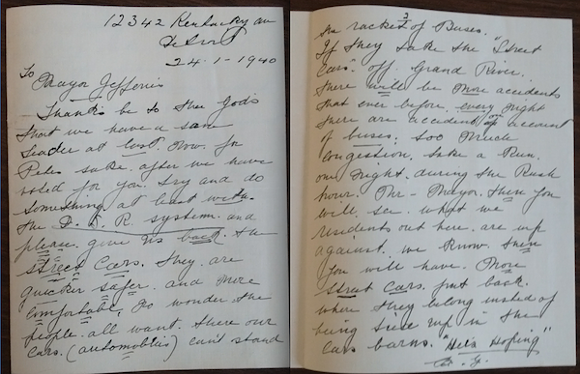 12342 Kentucky av
Detroit
24-1-1940
To
Mayor Jefferies
- Thanks be to the Gods
that we have a sane
leader at last. Now for
Petes sake. after we have
voted for you. try and do
something at least with.
the D. S. R. system. and
please give us back. the
street cars. they. are
quicker safer. and more
comfortable, No wonder the
people. all want. there our
cars. (automobiles) can't stand
3
the racket of Buses.
If they take the "Street
Cars" off Grand River.
there will be more accidents
that ever before. every night
there are accidents on account
of buses. too much
congestion. take a run.
one night. during the Rush
hour. Mr - Mayor. then you
will see. what we
residents out here. are up
against. we know. then
you will have. more
street cars. put back.
where they belong instead of
being tied up in the
Cars barns. "Here's Hoping"